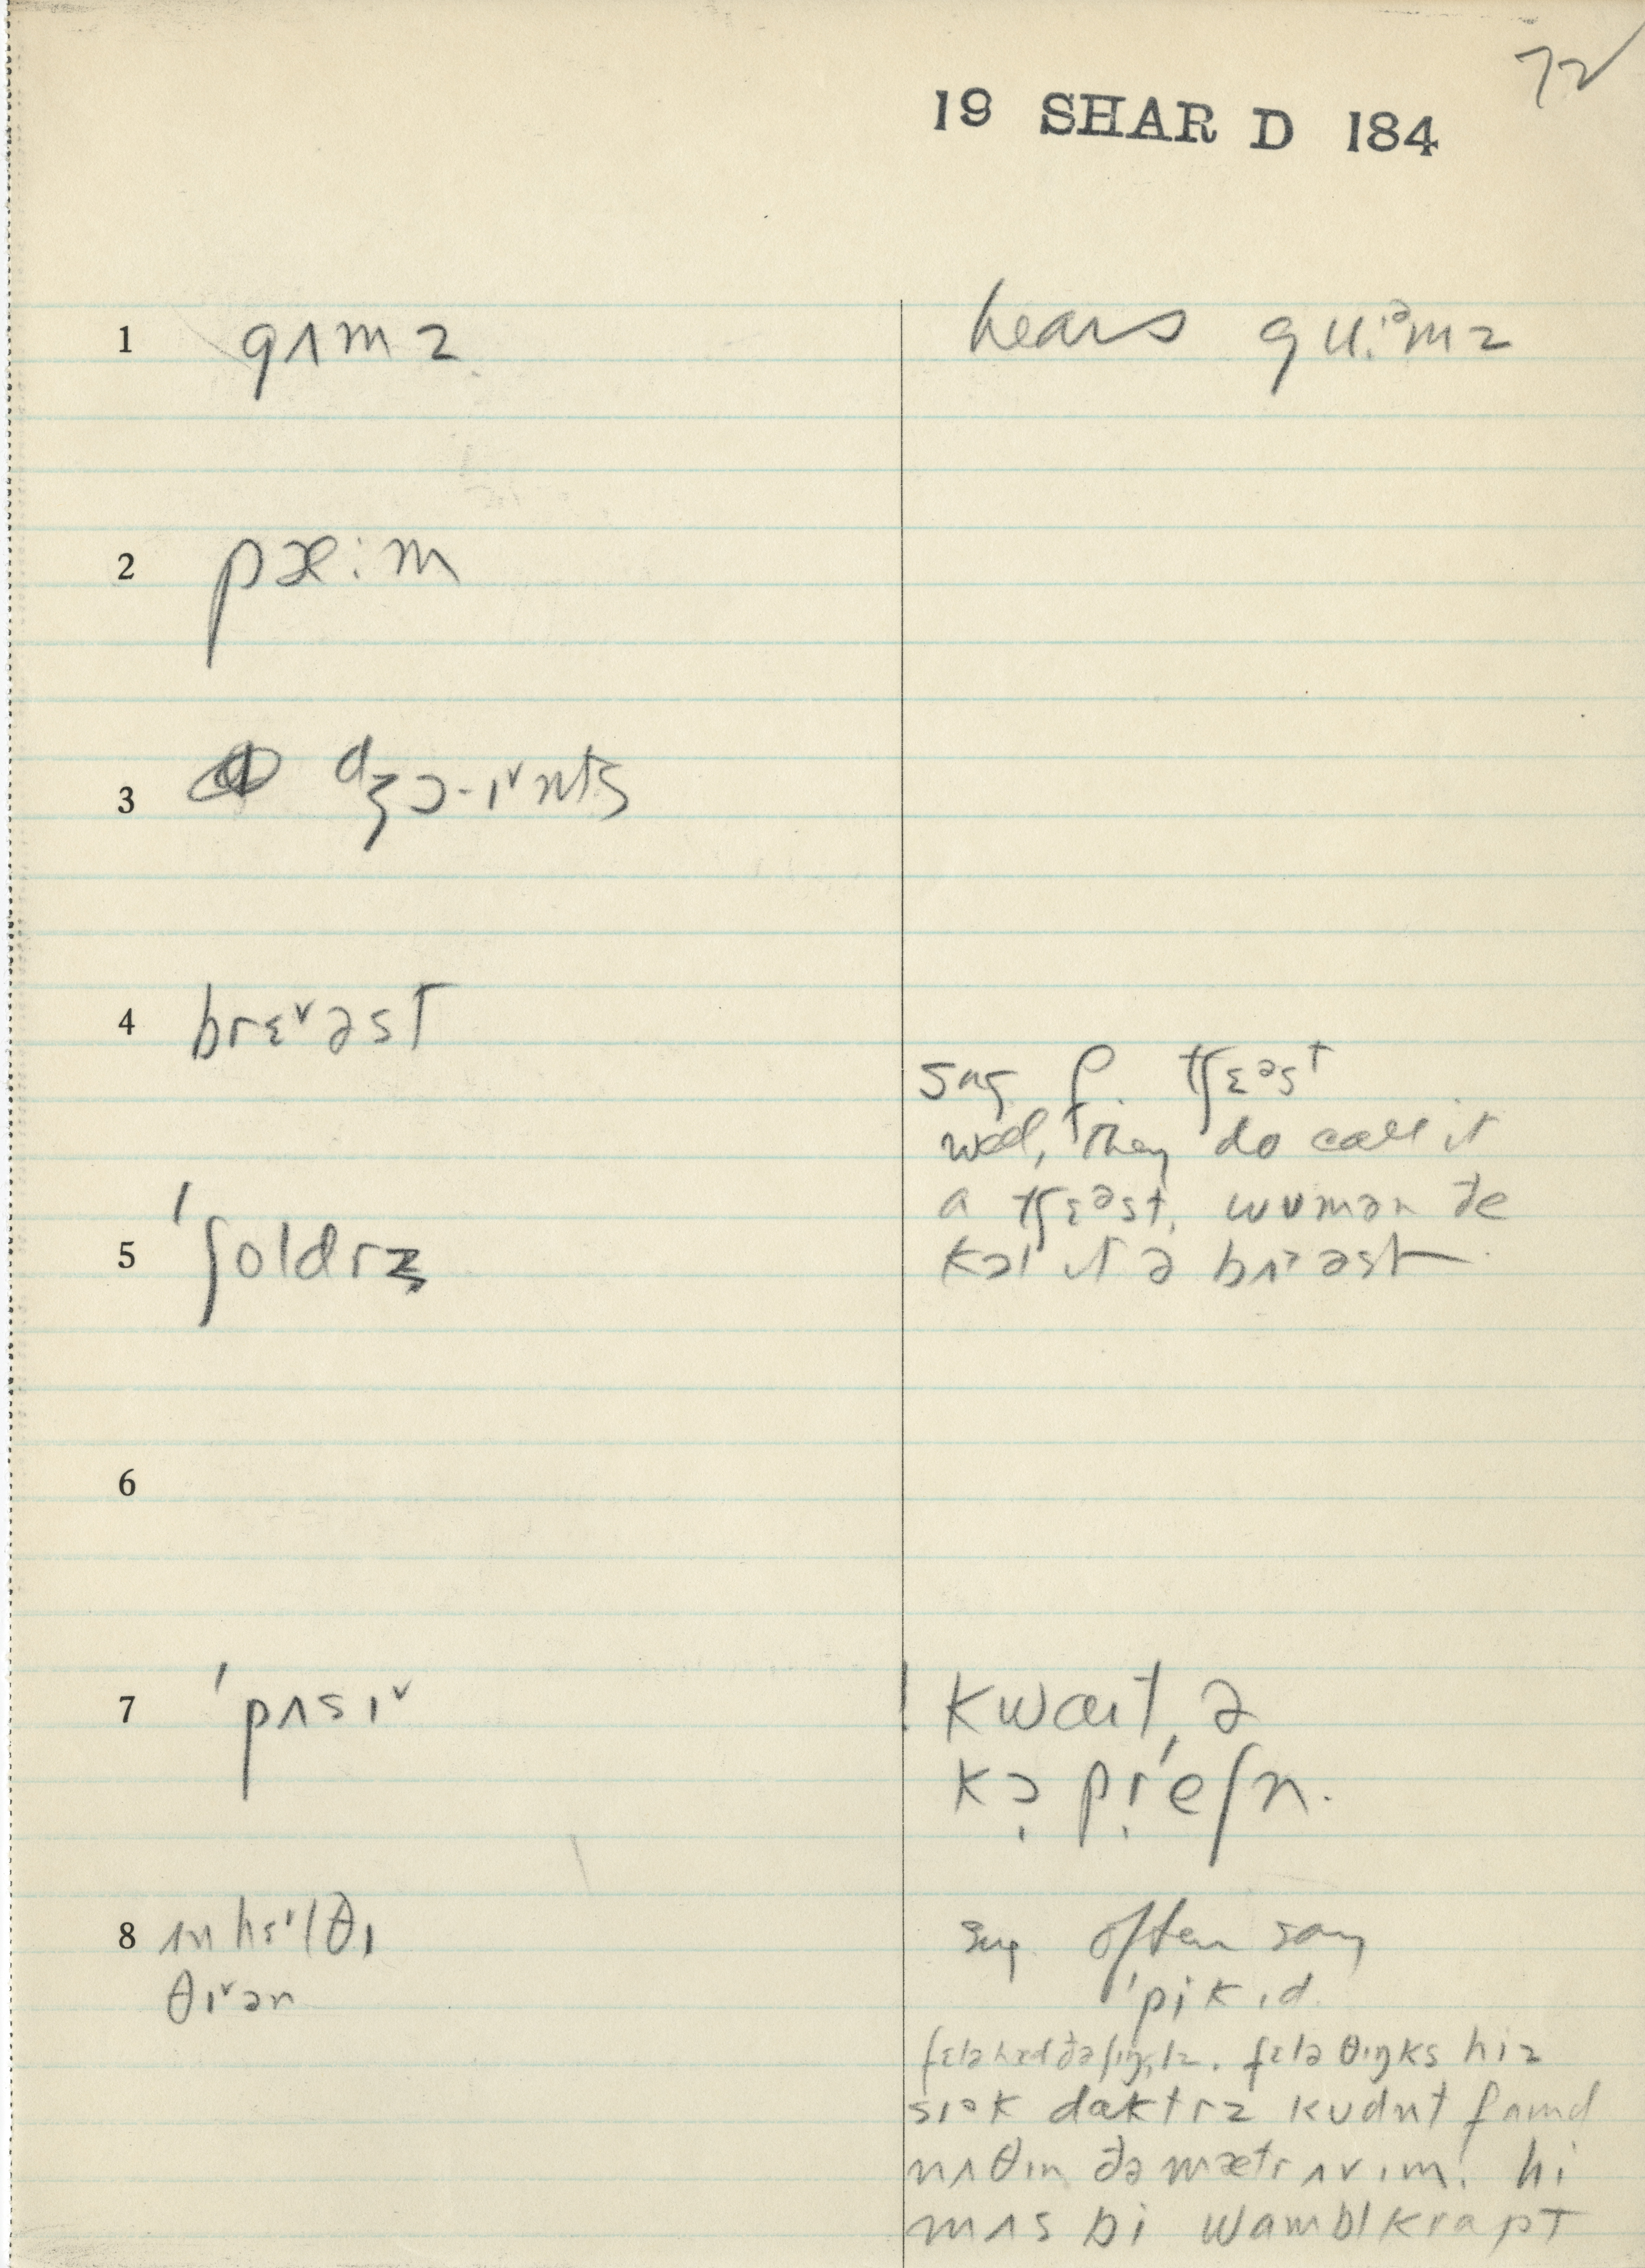 72
19 SHAR D 184
1 gʌmz hears gʉ:ᵊmz
2 pæ:m
3 dʒɔ-ɪˇnts
4 brɛˇəst
sug. p. tʃɛᵊst
well, they do call it
a tʃɛᵊst. wʊmən ðe
kɔl ɪt ə brɪˀəst
5 ˈʃoldrz
6
7 ˈpʌsɪˇ ! kwaɪt ə
kɔ̩ pr̩ˈeʃn.
8 ʌnhɛˈlθɪ sug. often say
θɪˇən ˈpikɪd.
fɛlə hæd ðə ʃɪŋglz. fɛlə θɪŋks hiz
sɪᵊk daktrz kʊdnt faund
nʌθɪn ðə mætr ʌv ɪm! hi
mʌs bi wamblkrapt